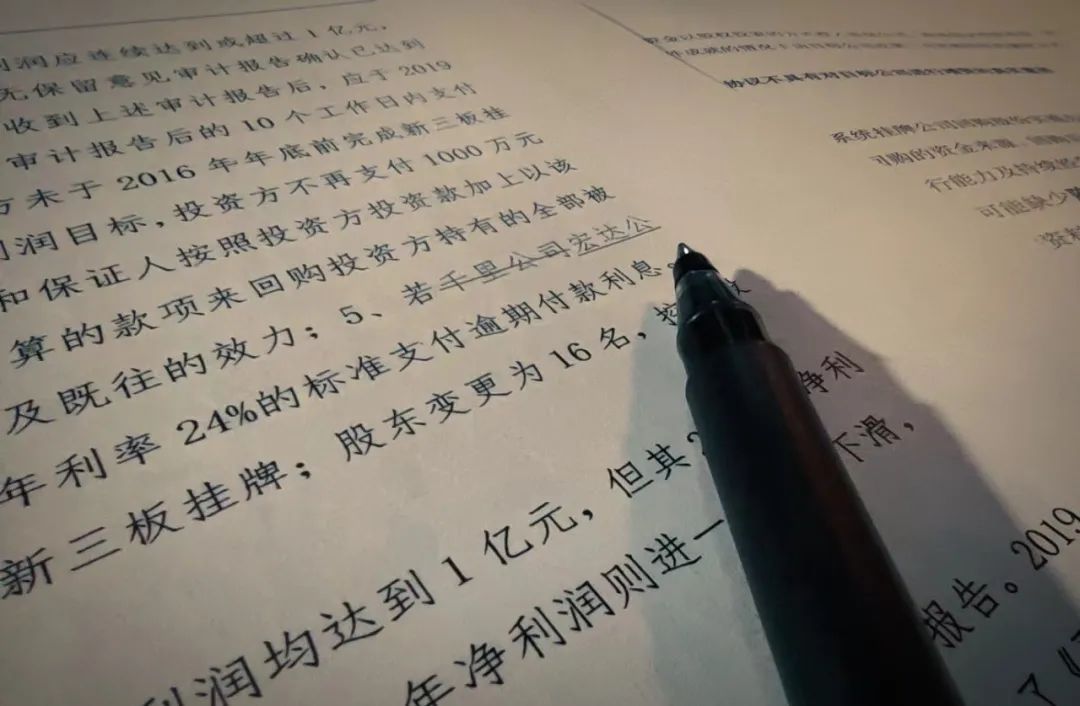 利润应连续达到或超过1亿元，
无保留意见审计报告确认已达到
收到上述审计报告后，应于2019
审计报告后的10个工作日内支付
方未于2016年年底前完成新三板挂
利润目标，投资方不再支付1000万元
和保证人按照投资方投资款加上以该
算的款项来回购投资方持有的全部被
及既往的效力；5、若千里公司宏达公
年利率24%的标准支付逾期付款利息。
新三板挂牌；股东变更为16名，控
利润均达到1亿元，但其 净利
年净利润则进一 下滑，
报告。2019
了《
协议不具有对目标公司进行
系统挂牌公司回购股份实施
可购的资金来源、回购
行能力及持续经
可能缺少
资料